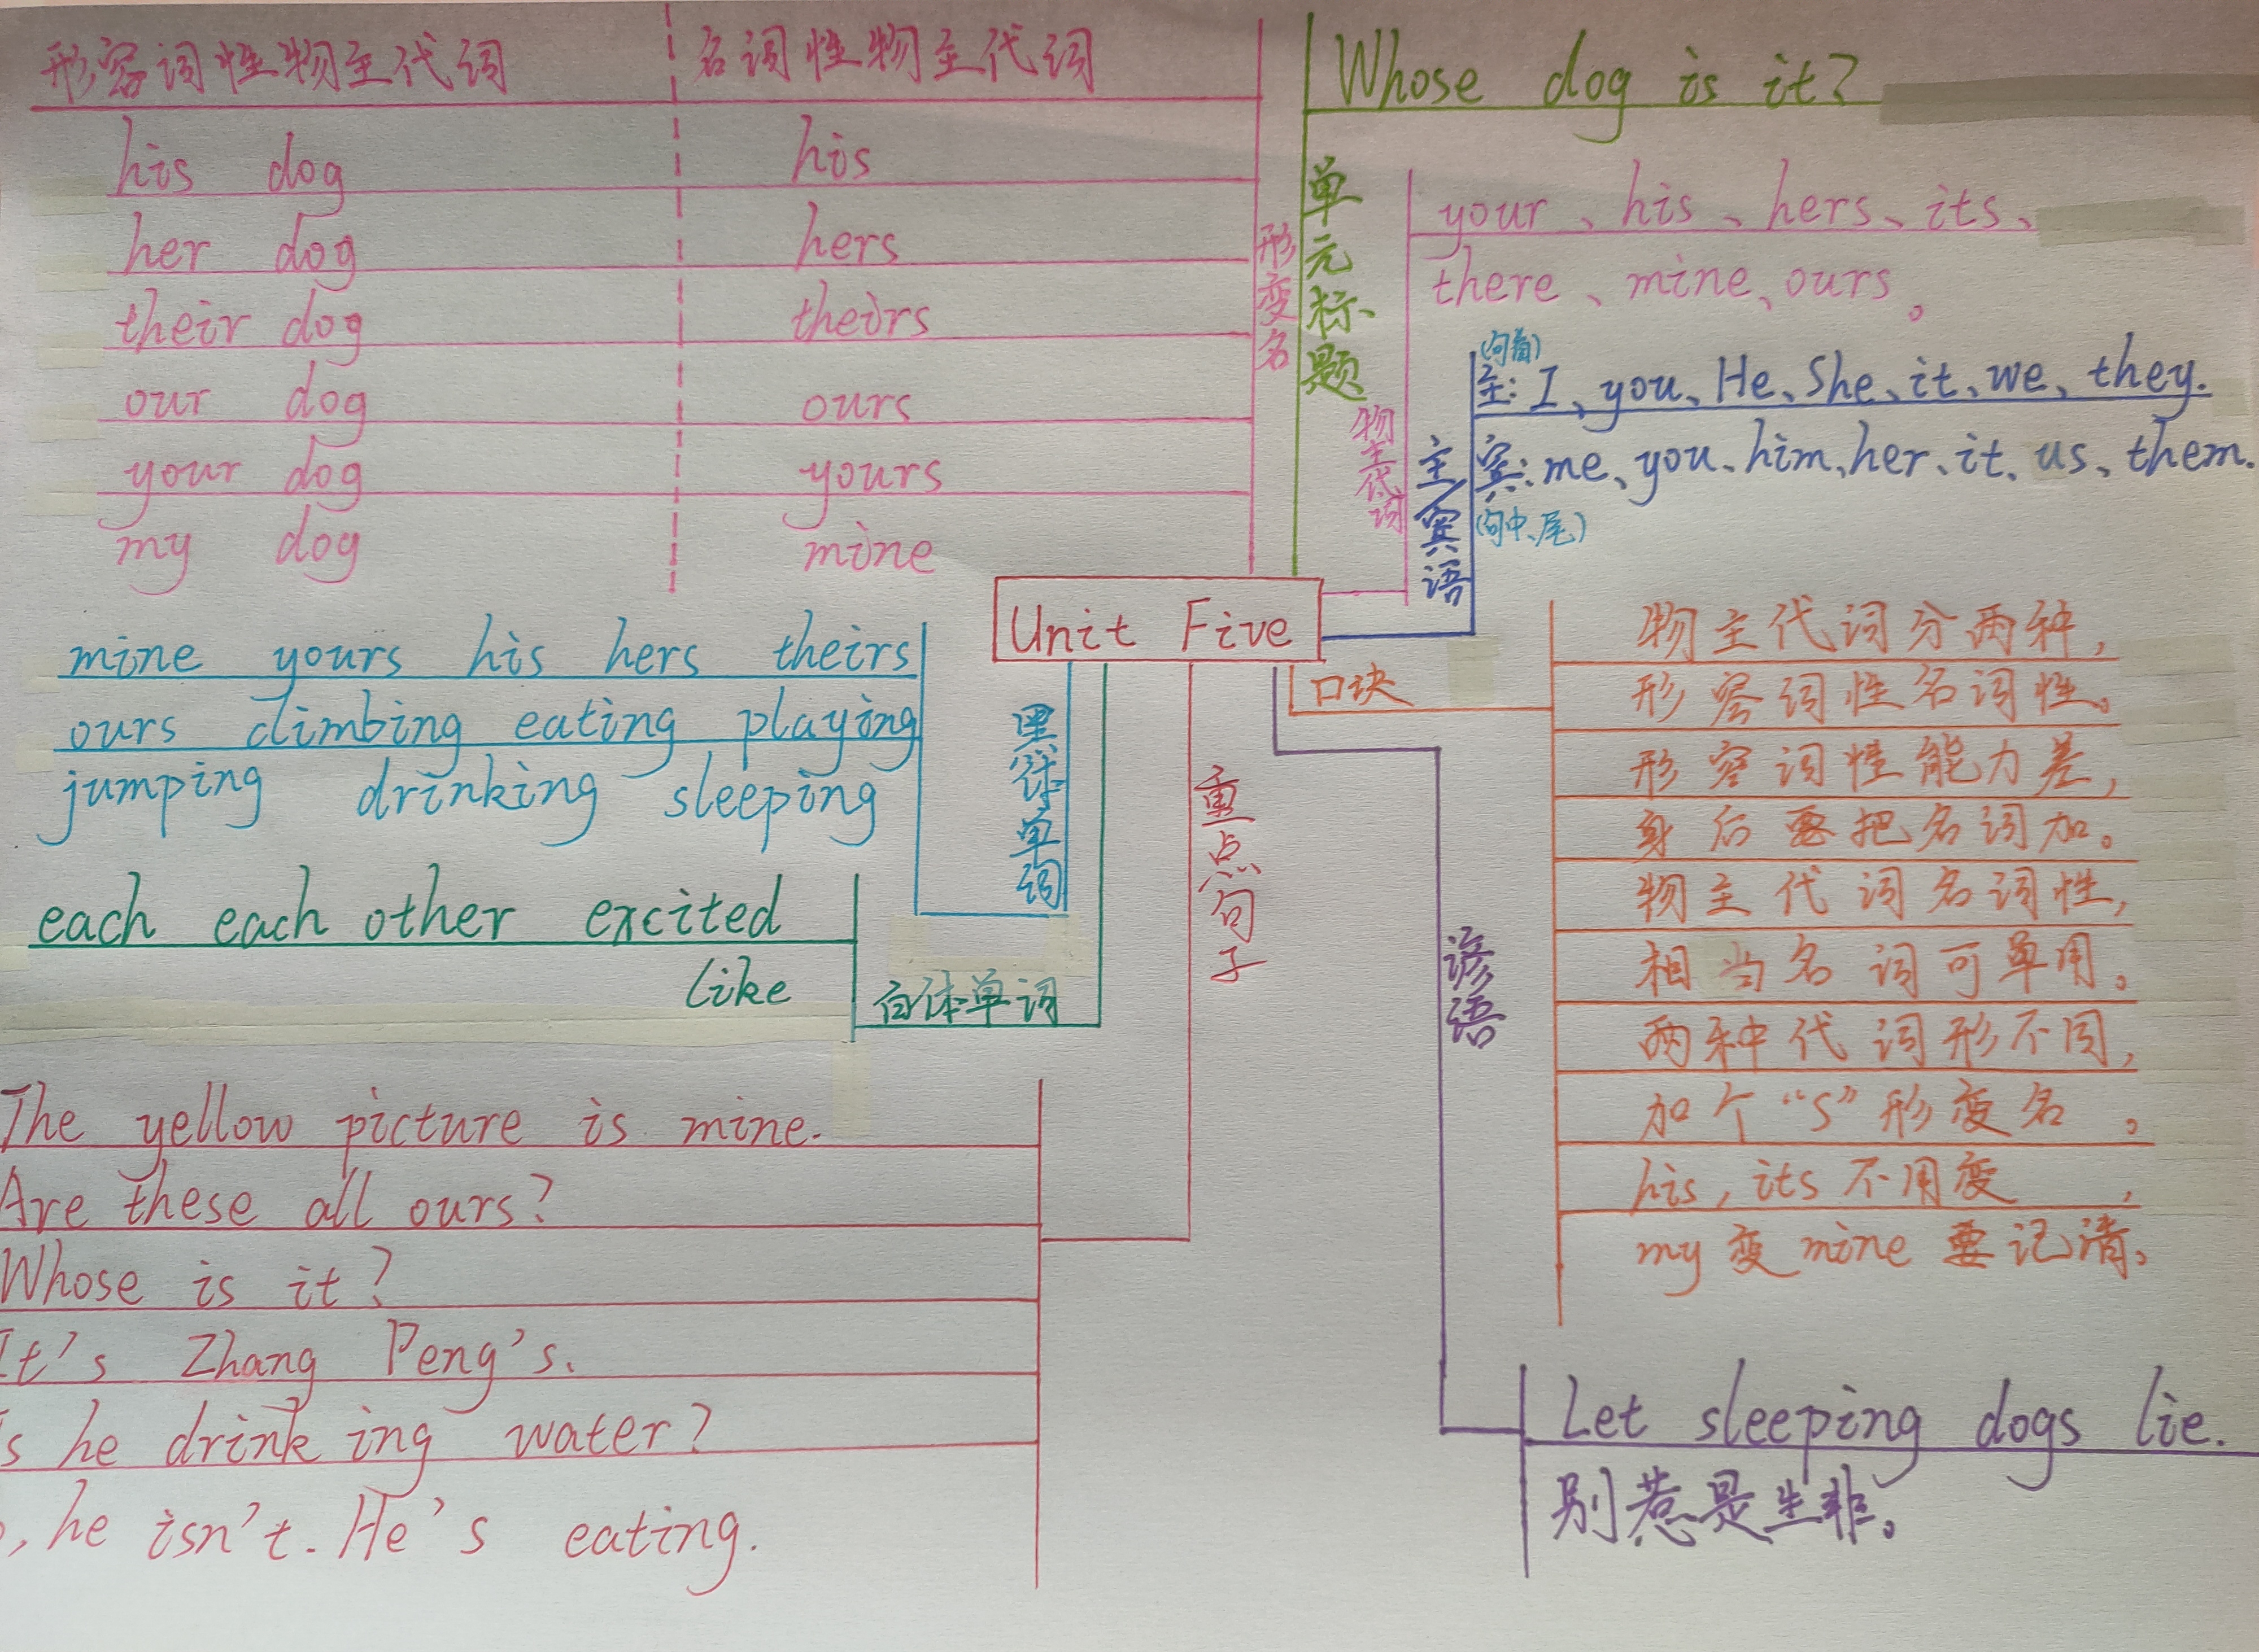 形容词性物主代词 名词性物主代词
his dog his
her dog hers
their dog theirs
our dog ours
your dog yours
my dog mine
形变名
单元标题
Whose dog is it?
物主代词
your、his、hers、its、
there、mine、ours。
主/宾语
(句首)
主: I、you、He、She、it、we、they.
宾: me、you、him、her、it、us、them.
(句中、尾)
Unit Five
黑体单词
mine yours his hers theirs
ours climbing eating playing
jumping drinking sleeping
白体单词
each each other excited
like
重点句子
The yellow picture is mine.
Are these all ours?
Whose is it?
It's Zhang Peng's.
s he drinking water?
, he isn't. He's eating.
口块
物主代词分两种,
形容词性名词性。
形容词性能力差,
身后要把名词加。
物主代词名词性,
相当名词可单用。
两种代词形不同,
加个“S”形变名。
his, its不用变,
my变mine要记清。
谚语
Let sleeping dogs lie.
别惹是生非。